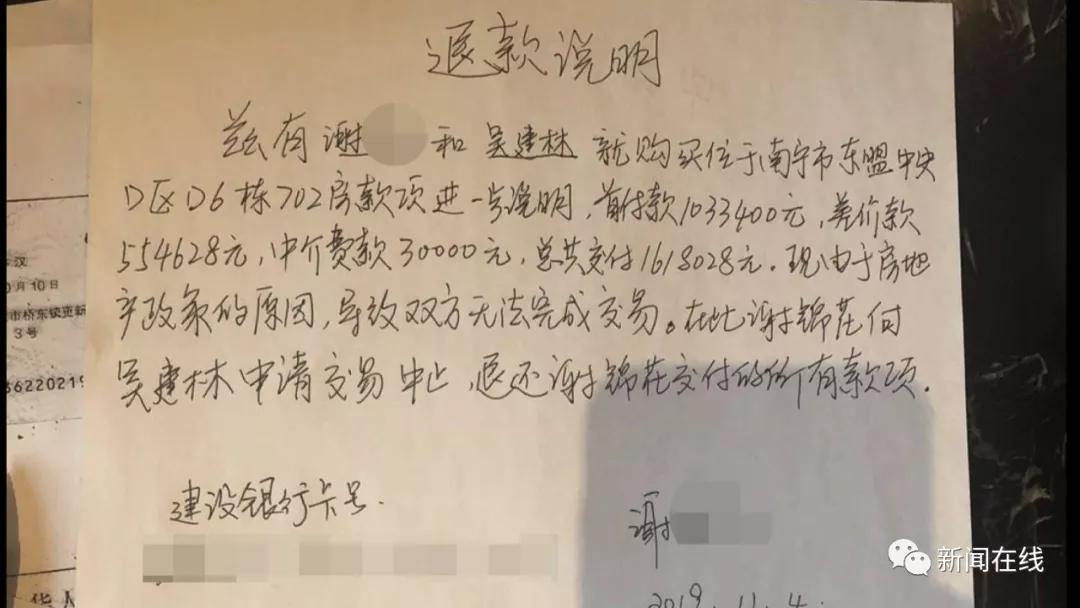 退款说明
兹有谢 和吴建林就购买位于南宁市东盟中央
D区D6栋702房款项进一步说明，首付款1033400元，差价款
554628元，中介费款30000元，总共交付1618028元。现由于房地
产政策的原因，导致双方无法完成交易。在此谢锦花付
吴建林申请交易中止，退还谢锦花交付的所有款项。
建设银行卡号.
谢
2019.11.4.
汉
月10日
市桥东镇更新
3号
66220219
华人
新闻在线